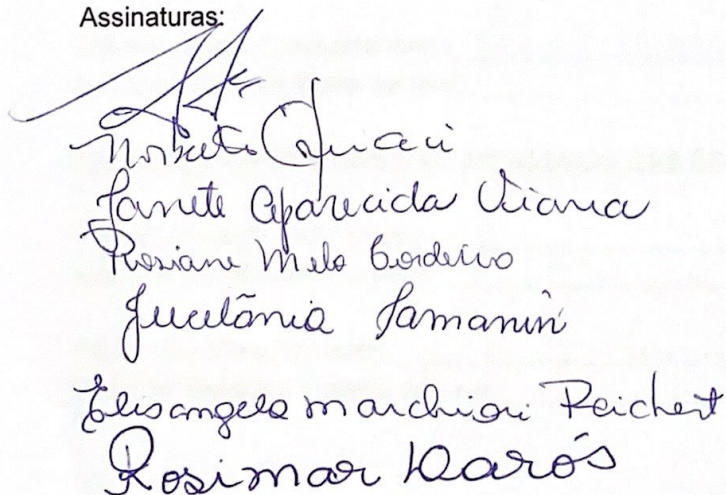 Assinaturas:
Janete Aparecida Viana
Rosiane Melo Cordeiro
Jucelânia Samanin
Elisangela Marchiori Reichert
Rosimar Darós